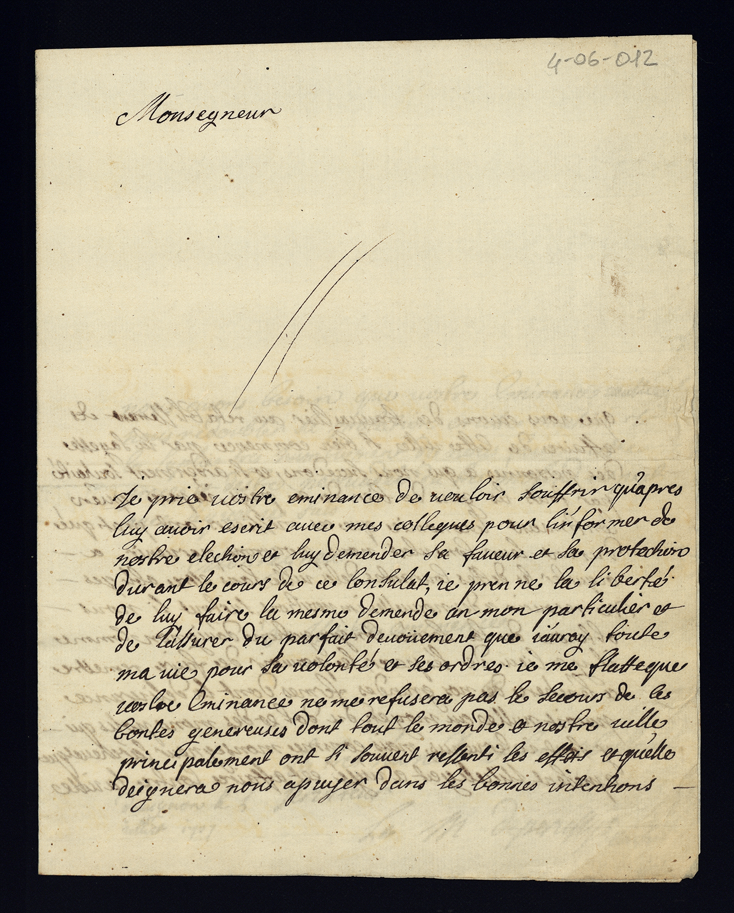 4-06-012
Monsegneur
Je prie vostre eminance de vouloir souffrir qu'apres
luy avoir escrit avec mes collegues pour l'informer de
nostre election et luy demender sa faveur et sa protection
durant le cours de ce Consulat, ie prenne la liberté
de luy faire la mesme demende an mon particulier et
de l'assurer du parfait devouement que i'auray toute
ma vie pour sa volonté et ses ordres. ie me flatte que
vostre Eminance ne me refusera pas le secours de ses
bontes genereuses dont tout le monde et nostre ville
principalement ont si souvent ressenti les effets et qu'elle
deignera nous apuyer dans les bonnes intentions